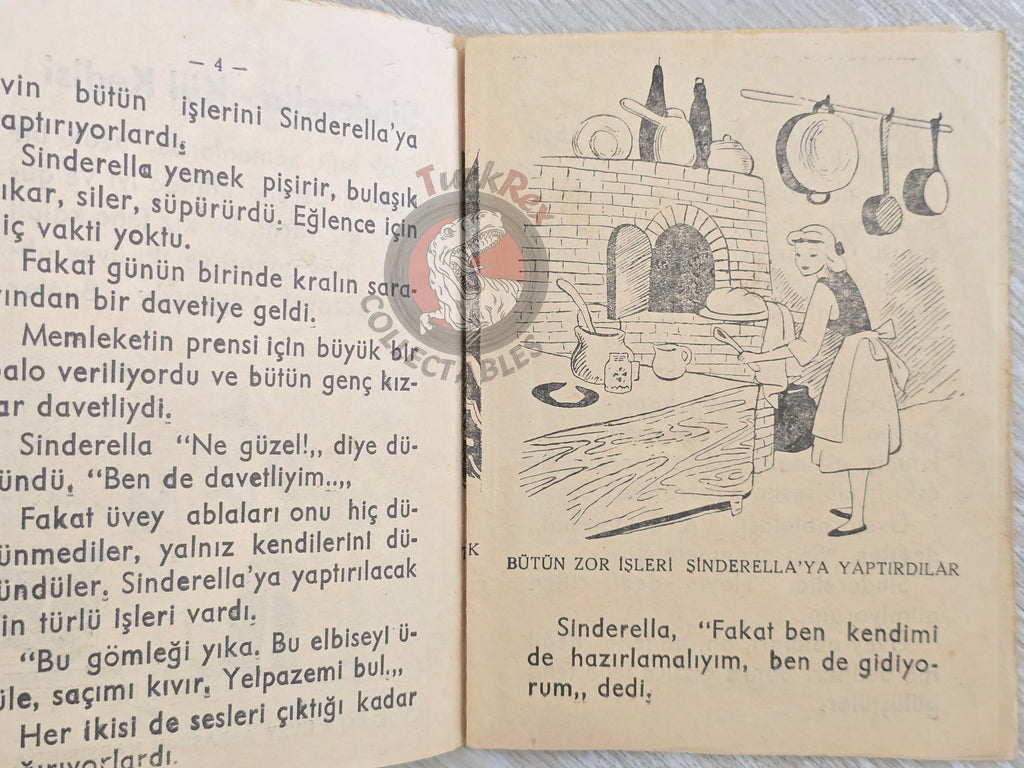 — 4 —
vin bütün işlerini Sinderella'ya
aptırıyorlardı.
Sinderella yemek pişirir, bulaşık
ıkar, siler, süpürürdü. Eğlence için
iç vakti yoktu.
Fakat günün birinde kralın sara-
yından bir davetiye geldi.
Memleketin prensi için büyük bir
balo veriliyordu ve bütün genç kız-
ar davetliydi.
Sinderella “Ne güzel!,, diye dü-
ündü. “Ben de davetliyim..,,
Fakat üvey ablaları onu hiç dü-
ünmediler, yalnız kendilerini dü-
ündüler. Sinderella'ya yaptırılacak
in türlü Işleri vardı.
“Bu gömleği yıka. Bu elbiseyl ü-
üle, saçımı kıvır. Yelpazemi bul..,,
Her ikisi de sesleri çıktığı kadar
ğırıyorlardı.
K
BÜTÜN ZOR İŞLERİ ŞİNDERELLA'YA YAPTIRDILAR
Sinderella, “Fakat ben kendimi
de hazırlamalıyım, ben de gidiyo-
rum,, dedi.
TurkRex
COLLECTABLES